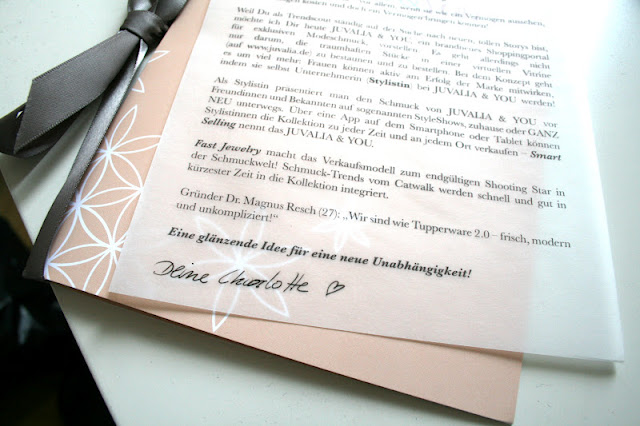 kosten und doch ein Vermögen
Weil Du als Trendscout ständig auf der Suche nach neuen, tollen Storys bist,
möchte ich Dir heute JUVALIA & YOU, ein brandneues Shoppingportal
für exklusiven Modeschmuck, vorstellen. Es geht allerdings nicht
nur darum, die traumhaften Stücke in einer virtuellen Vitrine
(auf www.juvalia.de) zu bestaunen und zu bestellen. Bei dem Konzept geht
es um viel mehr: Frauen können aktiv am Erfolg der Marke mitwirken,
indem sie selbst Unternehmerin (Stylistin) bei JUVALIA & YOU werden!
Als Stylistin präsentiert man den Schmuck von JUVALIA & YOU vor
Freundinnen und Bekannten auf sogenannten StyleShows, zuhause oder GANZ
NEU unterwegs. Über eine App auf dem Smartphone oder Tablet können
Stylistinnen die Kollektion zu jeder Zeit und an jedem Ort verkaufen – Smart
Selling nennt das JUVALIA & YOU.
Fast Jewelry macht das Verkaufsmodell zum endgültigen Shooting Star in
der Schmuckwelt! Schmuck-Trends vom Catwalk werden schnell und gut in
kürzester Zeit in die Kollektion integriert.
Gründer Dr. Magnus Resch (27): „Wir sind wie Tupperware 2.0 – frisch, modern
und unkompliziert!“
Eine glänzende Idee für eine neue Unabhängigkeit!
Deine Charlotte ♡